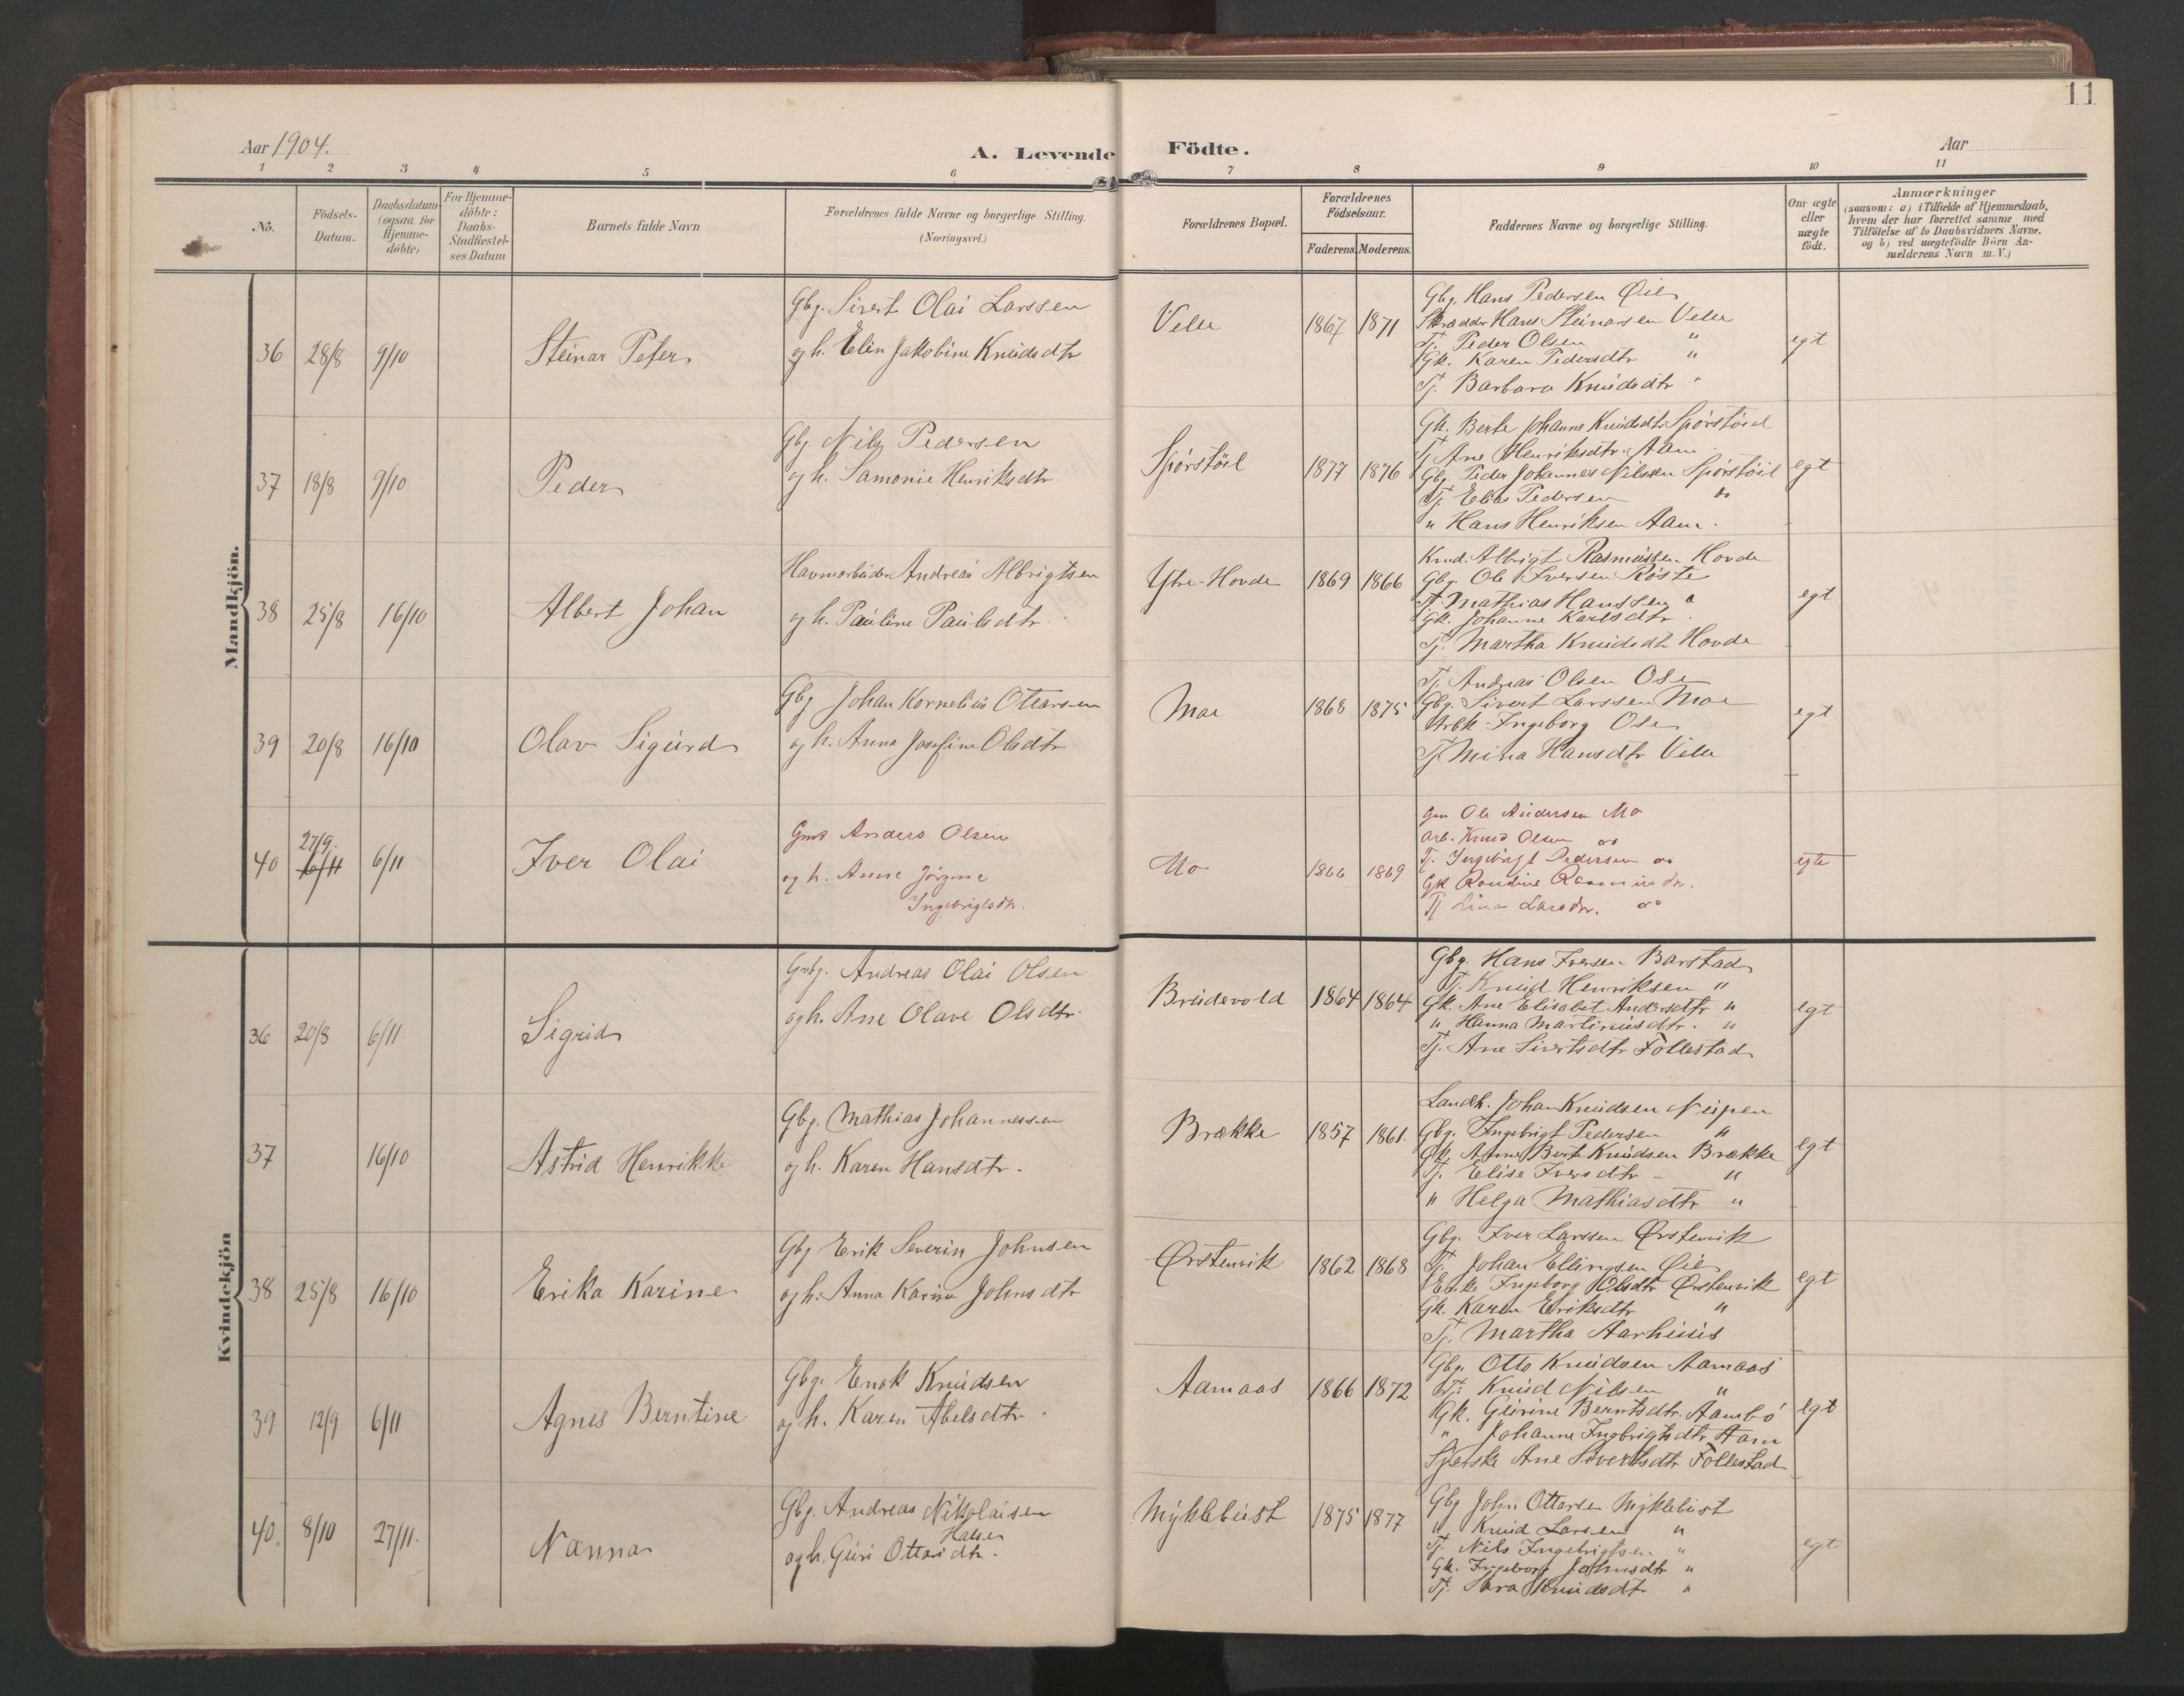 11
Aar 1904.
A. Levende Födte.
Aar
1 2 3 4 5 6 7 8 9 10 11
No.
Födsels-Datum.
Daabsdatum (ogsaa for Hjemme-döbte)
For Hjemme-döbte: Daabs-Stadfæstel-ses Datum
Barnets fulde Navn
Forældrenes fulde Navne og borgerlige Stilling.
(Næringsvei.)
Forældrenes Bopæl.
Forældrenes Födselsaar.
Faderens. Moderens.
Faddernes Navne og borgerlige Stilling.
Om ægte eller uægte födt.
Anmærkninger
(saasom: a) i Tilfælde af Hjemmedaab, hvem der har forrettet samme med Tilföielse af to Daabsvidners Navne, og b) ved uægtefödte Börn An-melderens Navn m.V.)
Mandkjön.
36 28/8 9/10 Steinar Peter
Gbg. Sivert Olai Larssen
og h. Elin Jakobine Knudsdtr
Velle 1867 1871
Gbg. Hans Pedersen Øie
Skrædder Hans Steinarsen Velle
Tj. Peder Olsen "
Gk. Karen Pedersdtr "
Tj. Barbara Knudsdtr "
egt
37 18/8 9/10 Peder
Gbg Nils Pedersen
og h. Samonie Henriksdtr.
Spórstöil 1877 1876
Gk. Berte Johanne Knudsdtr Spórstöil
Tj Ane Henriksdtr. Aam
Gbg. Peder Johannes Nilssen Spórstöil
Tj. Elias Pedersen do
" Hans Henriksen Aam.
egt
38 25/8 16/10 Albert Johan
Havnearbeider Andreas Albrigtsen
og h. Pauline Paulsdtr.
Ytre-Hovde 1869 1866
Knud Albrigt Rasmussen Hovde
Gbg. Ole Iversen Róste
Tj. Mathias Hanssen "
Gk. Johanne Karlsdtr
Tj. Martha Knudsdtr Hovde
egt
39 20/8 16/10 Olav Sigurd
Gbg Johan Kornelius Ottarsen
og h. Anna Josefine Olsdtr
Moe 1868 1875
Tj. Andreas Olsen Ose
Gbg. Sivert Larssen Moe
Ingeborg Ose
Tj Mina Hansdtr Velle
egt
40 27/9. 6/11 6/11 Iver Olai
Gmd Anders Olsen
og h. Anne Jörgine
Ingebrigtsdtr.
Mo 1866 1869
Gm Ole Andersen Mo
Arb. Knud Olsen do
Tj. Ingebrigt Pedersen do
Gk Rasmusdtr.
Tj Lina Larsdtr. do
egte
Kvindekjön
36 20/8 6/11 Sigrid
Gbg. Andreas Olai Olsen
og h. Ane Olave Olsdtr.
Brudevold 1864 1864
Gbg. Hans Iversen Barstad
Tj. Knud Henriksen "
Gk. Ane Elisabet Andersdtr "
" Hanna Martinusdtr. "
Tj. Ane Sivertsdtr Follestad
egt
37 16/10 Astrid Henrikke
Gbg. Mathias Johannessen
og h. Karen Hansdtr.
Brække 1857 1861.
Landh. Johan Knudsen Nupen
Gbg. Ingebrigt Pedersen "
Gk. Anne Berte Knudsen Brække
Tj. Elise Iversdtr - "
" Helga Mathiasdtr "
egt
38 25/8 16/10 Erika Karine
Gbg Erik Severin Johnsen
og h. Anna Karine Johnsdtr
Ørstenvik 1862 1868
Gbg. Iver Larssen Ørstenvik
Tj. Johan Ellingsen Øie
Enke Ingeborg Olsdtr Ørstenvik
Gk. Karen Eriksdtr "
Tj. Martha Aarhuus
egt
39 12/9 6/11 Agnes Berntine
Gbg. Enok Knudsen
og h. Karen Abelsdtr.
Aamaas 1866 1872
Gbg. Otto Knudsen Aamaas
Tj. Knud Nilsen "
Gk. Geirine Berntsdtr. Aambó
" Johanne Ingebrigtsdtr Aam
Ane Sivertsdtr Follestad
egt
40. 8/10 27/11. Nanna
Gbg. Andreas Nikolaisen
og h. Guri Ottarsdtr.
Myklebust 1875 1877
Gbg John Ottarsen Myklebust
" Knud Larsen "
Tj. Nils Ingebrigtsen "
Gk. Ingeborg Johnsdtr "
Tj. Sara Knudsdtr "
egt